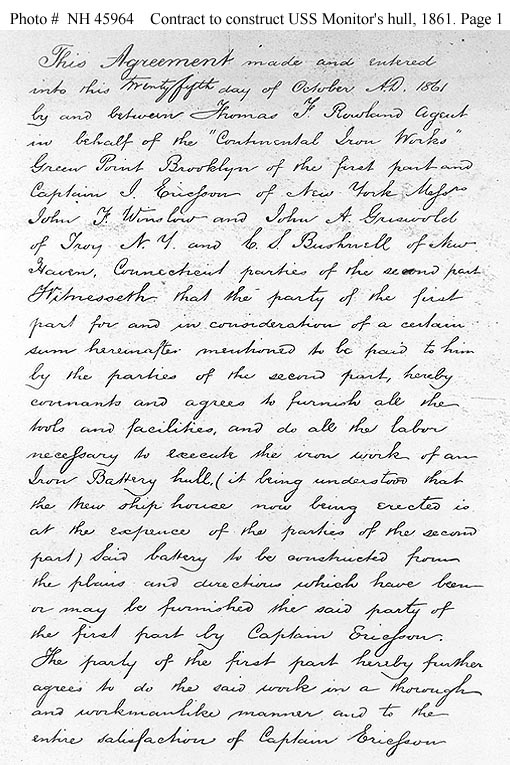 Photo # NH 45964 Contract to construct USS Monitor's hull, 1861. Page 1
This Agreement made and entered
into this twenty fifth day of October A.D. 1861
by and between Thomas F Rowland agent
in behalf of the "Continental Iron Works"
Green Point Brooklyn of the first part and
Captain J. Ericsson of New York Messrs
John F. Winslow and John A. Griswold
of Troy N. Y. and C. S Bushnell of New
Haven, Connecticut parties of the second part
Witnesseth that the party of the first
part for and in consideration of a certain
sum hereinafter mentioned to be paid to him
by the parties of the second part, hereby
covenants and agrees to furnish all the
tools and facilities, and do all the labor
necessary to execute the iron work of an
Iron Battery hull, (it being understood that
the new ship house now being erected is
at the expence of the parties of the second
part) Said battery to be constructed from
the plans and directions which have been
or may be furnished the said party of
the first part by Captain Ericsson.
The party of the first part hereby further
agrees to do the said work in a thorough
and workmanlike manner and to the
entire satisfaction of Captain Ericsson